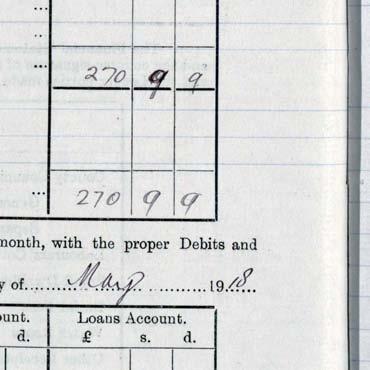 270 9 9
... 270 9 9
month, with the proper Debits and
y of.......May............1918.
unt. Loans Account.
d. £ s. d.